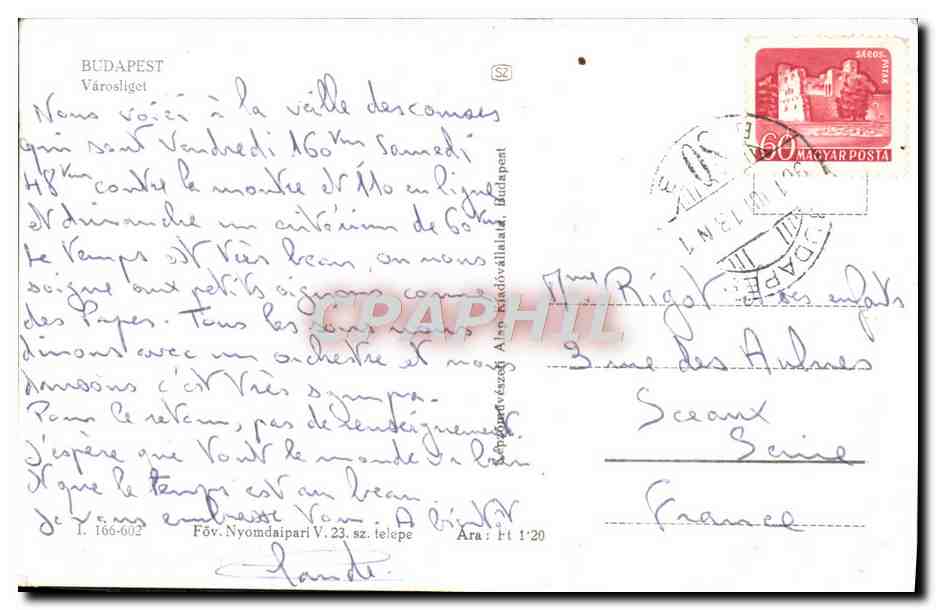 BUDAPEST
Városliget
SZ
SÁROS-
PATAK
60 MAGYAR POSTA
Nous voici à la veille des courses
qui sont Vendredi 160 km Samedi
48 km contre la montre et 110 en ligne
et dimanche un critérium de 60 km
Le temps est très beau, on nous
soigne aux petits oignons comme
des Papes. Tous les soirs nous
dinons avec un orchestre et nous
dansons c'est très sympa.
Pour le retour, pas de renseignement.
J'espère que tout le monde va bien
et que le temps est au beau.
Je vous embrasse tous. A bientôt
Claude
Képzőművészeti Alap Kiadóvállalata, Budapest
Mme Rigot et ses enfants
3 rue des Aulnes
Sceaux
Seine
France
I. 166-602 Föv. Nyomdaipari V. 23. sz. telepe Ára: Ft 1'20
CPAPHIL